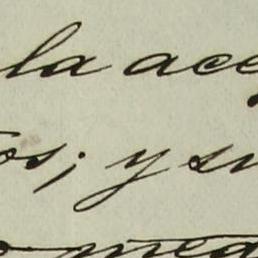 la ace
os; y su
o mega